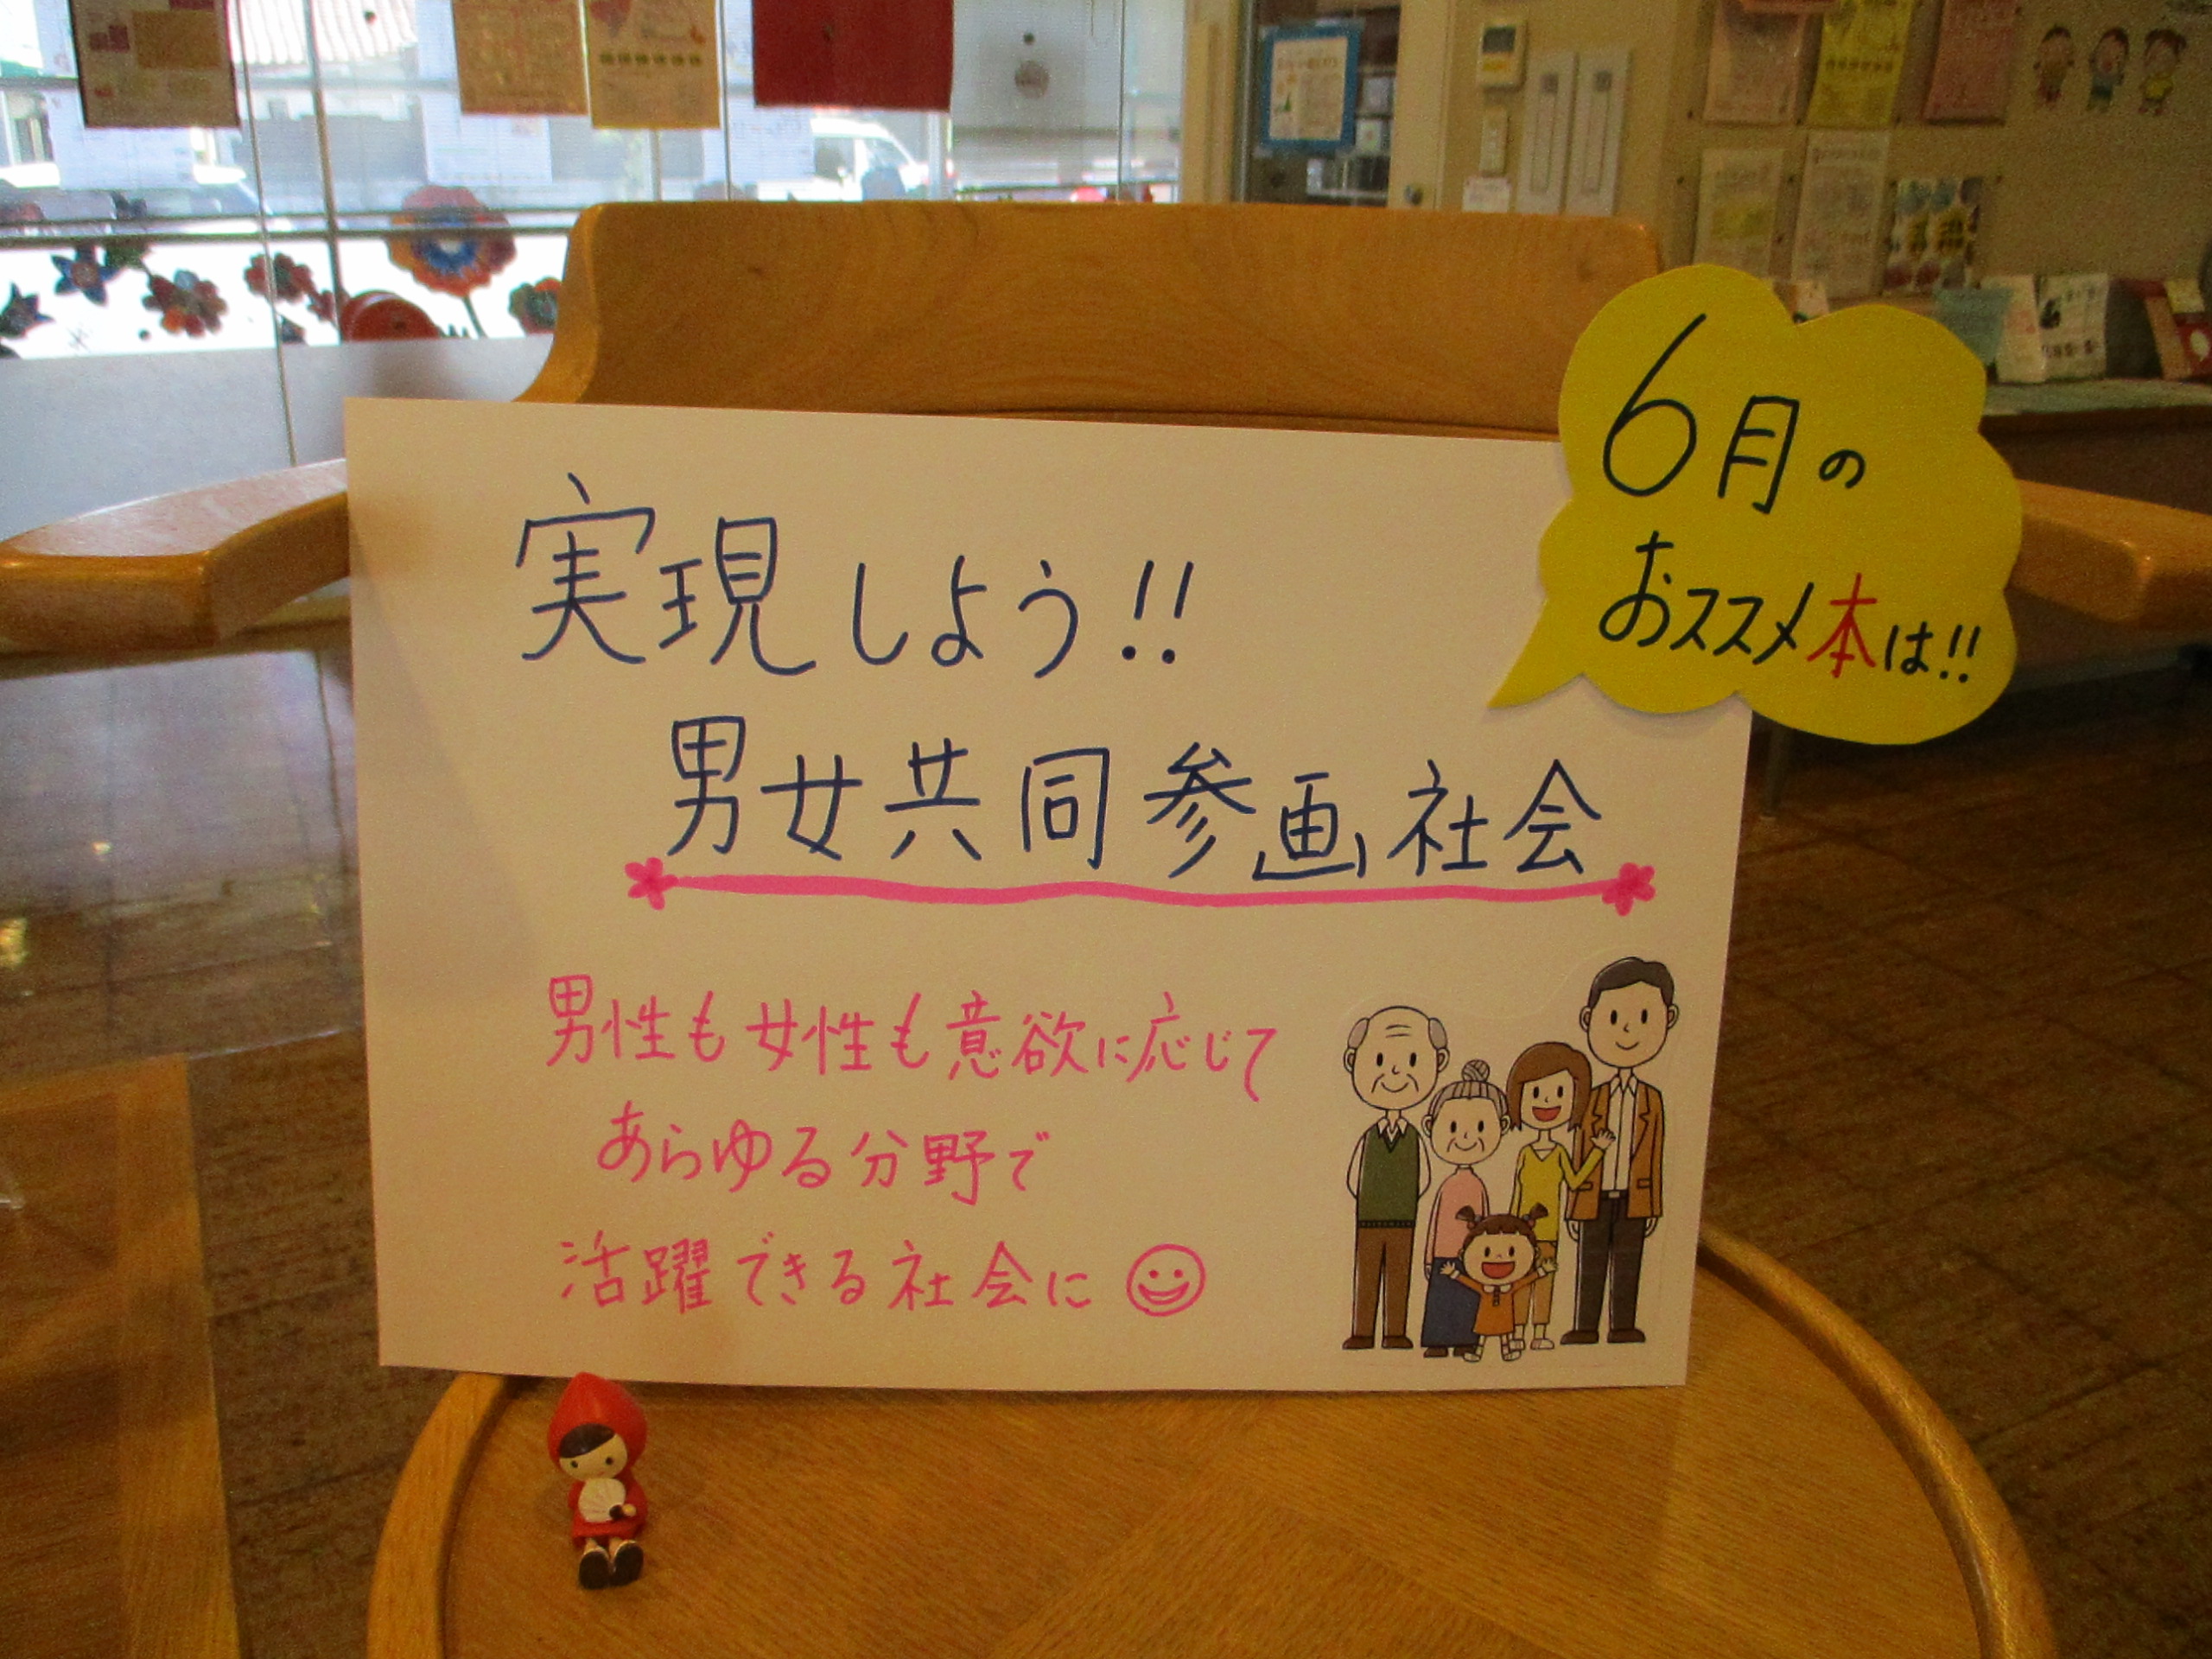 6月の
おススメ本は!!
実現しよう!!
男女共同参画社会
男性も女性も意欲に応じて
あらゆる分野で
活躍できる社会に